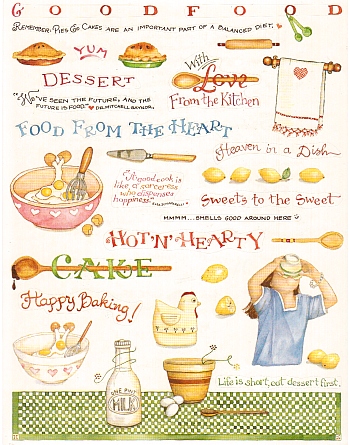 GOOD FOOD
REMEMBER: PIES & CAKES ARE AN IMPORTANT PART OF A BALANCED DIET.
YUM
With
Love
From the Kitchen
DESSERT
"WE'VE SEEN THE FUTURE, AND THE
FUTURE IS FOOD." DR. MITCHELL GAYLOR
FOOD FROM THE HEART
Heaven in a Dish
"A good cook is
like a sorceress
who dispenses
happiness."
Sweets to the Sweet
MMMM...SMELLS GOOD AROUND HERE
"HOT 'N' HEARTY
CAKE
Happy Baking!
ONE PINT
MILK
Life is short, eat dessert first.